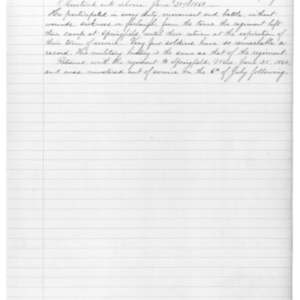 service June 21st 186
He participated in every duty movement and battle without
wounds, sickness or furlough from the time the regiment left
their camp at Springfield until their return at the expiration of
their term of service. Very few soldiers have so remarkable a
record. His military history is the same as that of the regiment.
Returned with the regiment to Springfield, Mass June 25. 186
and was mustered out of service on the 6th of July following.